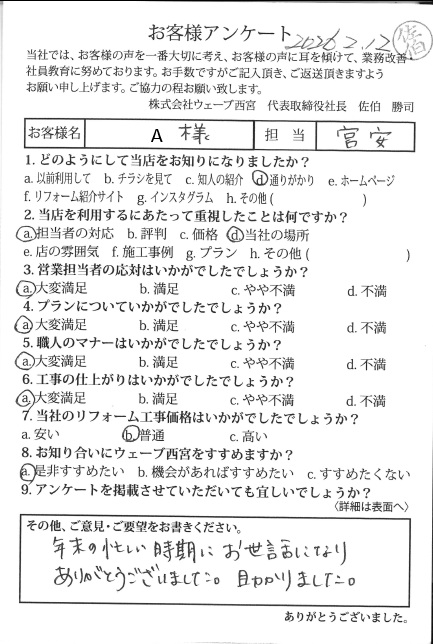 お客様アンケート 2026.2.12 佐伯
当社では、お客様の声を一番大切に考え、お客様の声に耳を傾けて、業務改善・
社員教育に努めております。お手数ですがご記入頂き、ご返送頂きますよう
お願い申し上げます。ご協力の程お願い致します。
株式会社ウェーブ西宮 代表取締役社長 佐伯 勝司
お客様名 A 様 担 当 宮安
1. どのようにして当店をお知りになりましたか?
a. 以前利用して b. チラシを見て c. 知人の紹介 d. 通りがかり e. ホームページ
f. リフォーム紹介サイト g. インスタグラム h. その他 ( )
2. 当店を利用するにあたって重視したことは何ですか?
a. 担当者の対応 b. 評判 c. 価格 d. 当社の場所
e. 店の雰囲気 f. 施工事例 g. プラン h. その他 ( )
3. 営業担当者の応対はいかがでしたでしょうか?
a. 大変満足 b. 満足 c. やや不満 d. 不満
4. プランについていかがでしたでしょうか?
a. 大変満足 b. 満足 c. やや不満 d. 不満
5. 職人のマナーはいかがでしたでしょうか?
a. 大変満足 b. 満足 c. やや不満 d. 不満
6. 工事の仕上がりはいかがでしたでしょうか?
a. 大変満足 b. 満足 c. やや不満 d. 不満
7. 当社のリフォーム工事価格はいかがでしたでしょうか?
a. 安い b. 普通 c. 高い
8. お知り合いにウェーブ西宮をすすめますか?
a. 是非すすめたい b. 機会があればすすめたい c. すすめたくない
9. アンケートを掲載させていただいても宜しいでしょうか?
〈詳細は表面へ〉
その他、ご意見・ご要望をお書きください。
年末の忙しい時期にお世話になり
ありがとうございました。助かりました。
ありがとうございました。